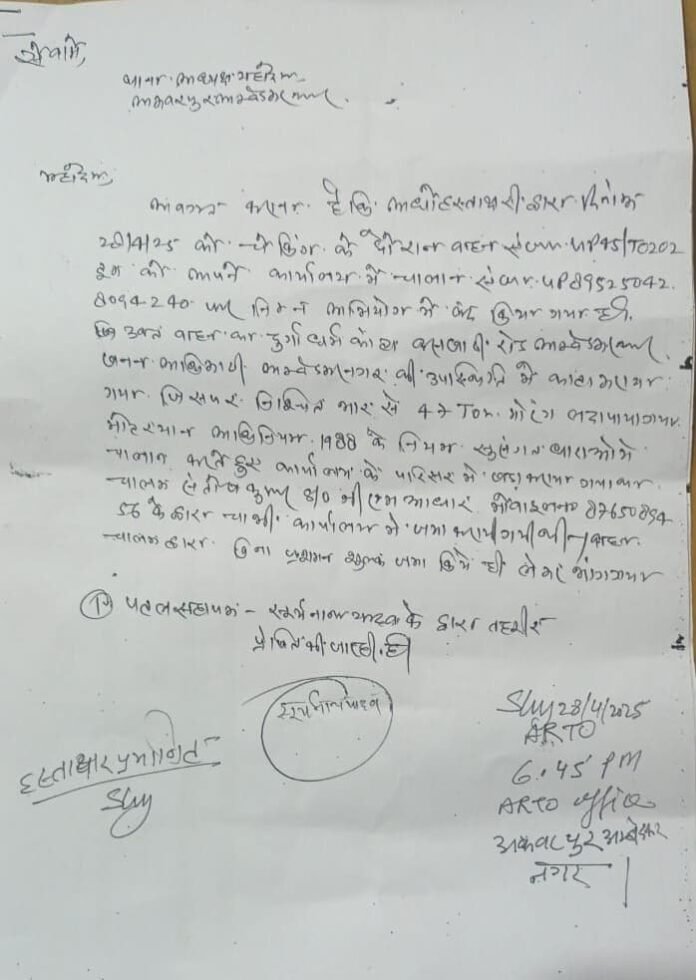 सेवामें,
थाना अध्यक्ष महोदय
अकबरपुर अम्बेडकरनगर
महोदय,
अवगत कराना है कि अधोहस्ताक्षरी द्वारा दिनांक
28/4/25 को चेकिंग के दौरान वाहन संख्या UP45/T0202
को अपने कार्यालय में चालान संख्या UP89525042
8094240 पर निम्न अभियोग में बंद किया गया है।
उक्त वाहन का दुर्गा धर्म कांटा रोड अम्बेडकरनगर
खनन अधिकारी अम्बेडकरनगर की उपस्थिति में कांटा कराया
गया जिसपर निश्चित भार से 47 Ton लदा पाया गया
मोटरयान अधिनियम 1988 के नियम सुसंगत धाराओं में
चालान करते हुए कार्यालय के परिसर में खड़ा कराया गया
चालक S/O श्री राम आधार मोबाइल न० 87650894
56 के द्वारा चाभी कार्यालय में जमा करायी गयी थी वाहन
चालक द्वारा बिना प्रशमन शुल्क जमा किये ही लेकर भाग गया
(1) सहायक - यादव के द्वारा तहरीर
प्रेषित की जा रही है।
हस्ताक्षर प्रमाणित
28/4/2025
ARTO
6.45 PM
ARTO office
अकबरपुर अम्बेडकर
नगर